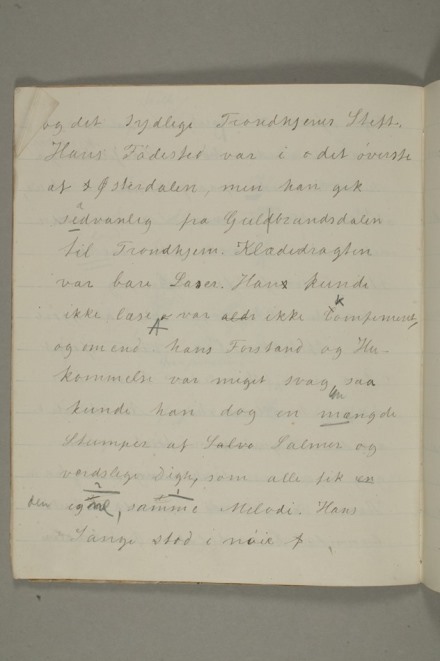 og det Sydlige Trondhjems Stift.
Hans Fødested var i det överste
af Østerdalen, men han gik
sådvanlig fra Guldbrandsdalen
til Trondhjem. Klædedragten
var bare Laser. Han kunde
ikke læse, var ikke Komfimeret,
og omend hans Forstand og Hu-
kommelse var miget svag, saa
kunde han dog en mængde
Stumper af Salmer og
verdslige Digte, som alle fik
den samme Melodi. Hans
Sange stod i nöie